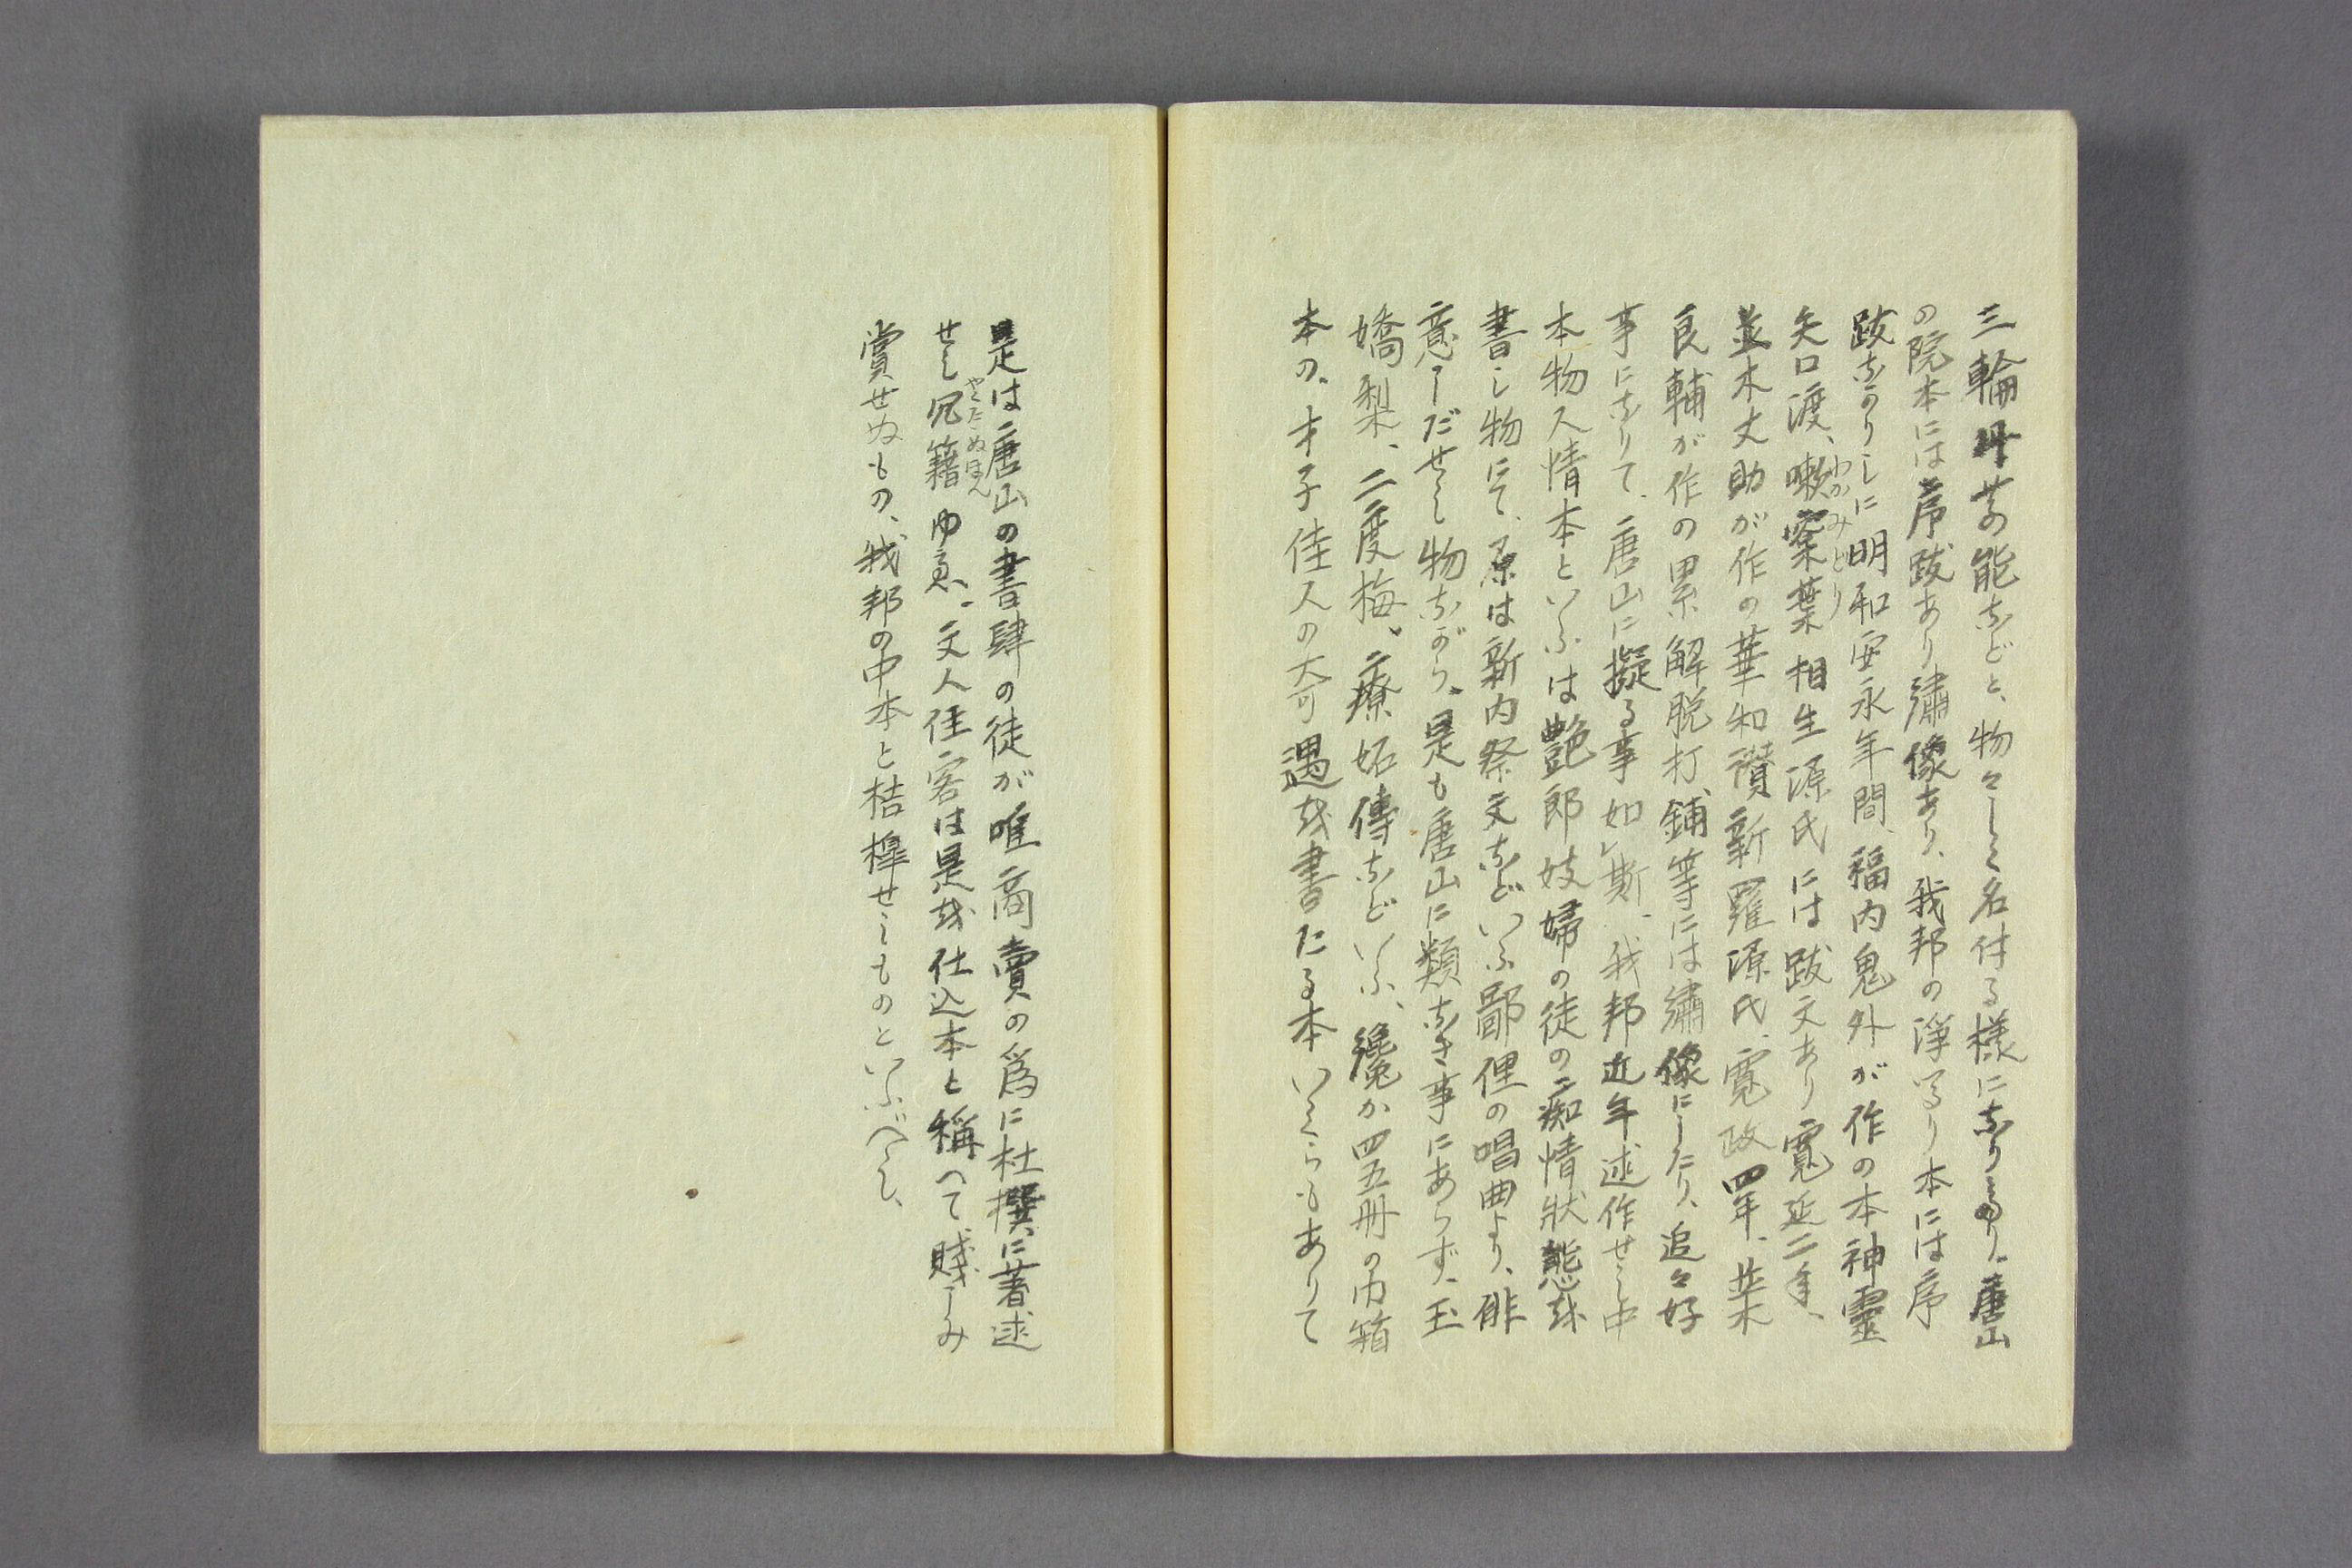 三輪丹前能など、物々しく名付る様になりたり、唐山
の院本には序跋あり繍像あり、我邦の浄るり本には序
跋なかりしに明和安永年間、福内鬼外が作の本神靈
矢口渡、嫩案葉相生源氏には跋文あり寛延二年、
わかみどり
並木丈助が作の華和讃新羅源氏、寛政四年、並木
良輔が作の累解脱打鋪等には繍像にしたり、追々好
事になりて、唐山に擬る事如レ斯、我邦近年述作せし中
本物人情本といふは艶郎妓婦の徒の痴情狀態を
書し物にて、原は新内祭文などいふ鄙俚の唱曲より、俳
意しだせし物ながら、是も唐山に類なき事にあらず、玉
嬌梨、二度梅、療妬傳などいふ、纔か四五冊の巾箱
本の、才子佳人の奇遇を書たる本いくらもありて
是は唐山の書肆の徒が唯商賣の爲に杜撰に著述
せし冗籍ゆゑ、文人佳客は是を仕込本と稱へて、賤しみ
やくたゝぬほん
賞せぬもの、我邦の中本と桔槹せしものといふべし、